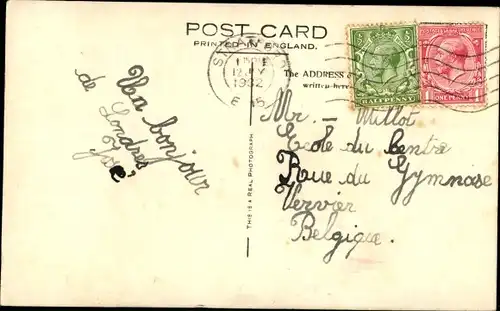 POST CARD
PRINTED IN ENGLAND.
The ADDRESS
written here
HALFPENNY
ONE PENNY
12 JY
1932
E 15
Un bonjour
de Londres
THIS IS A REAL PHOTOGRAPH
Mr - Millot
Ecole du Centre
Rue du Gymnase
Vervier
Belgique.